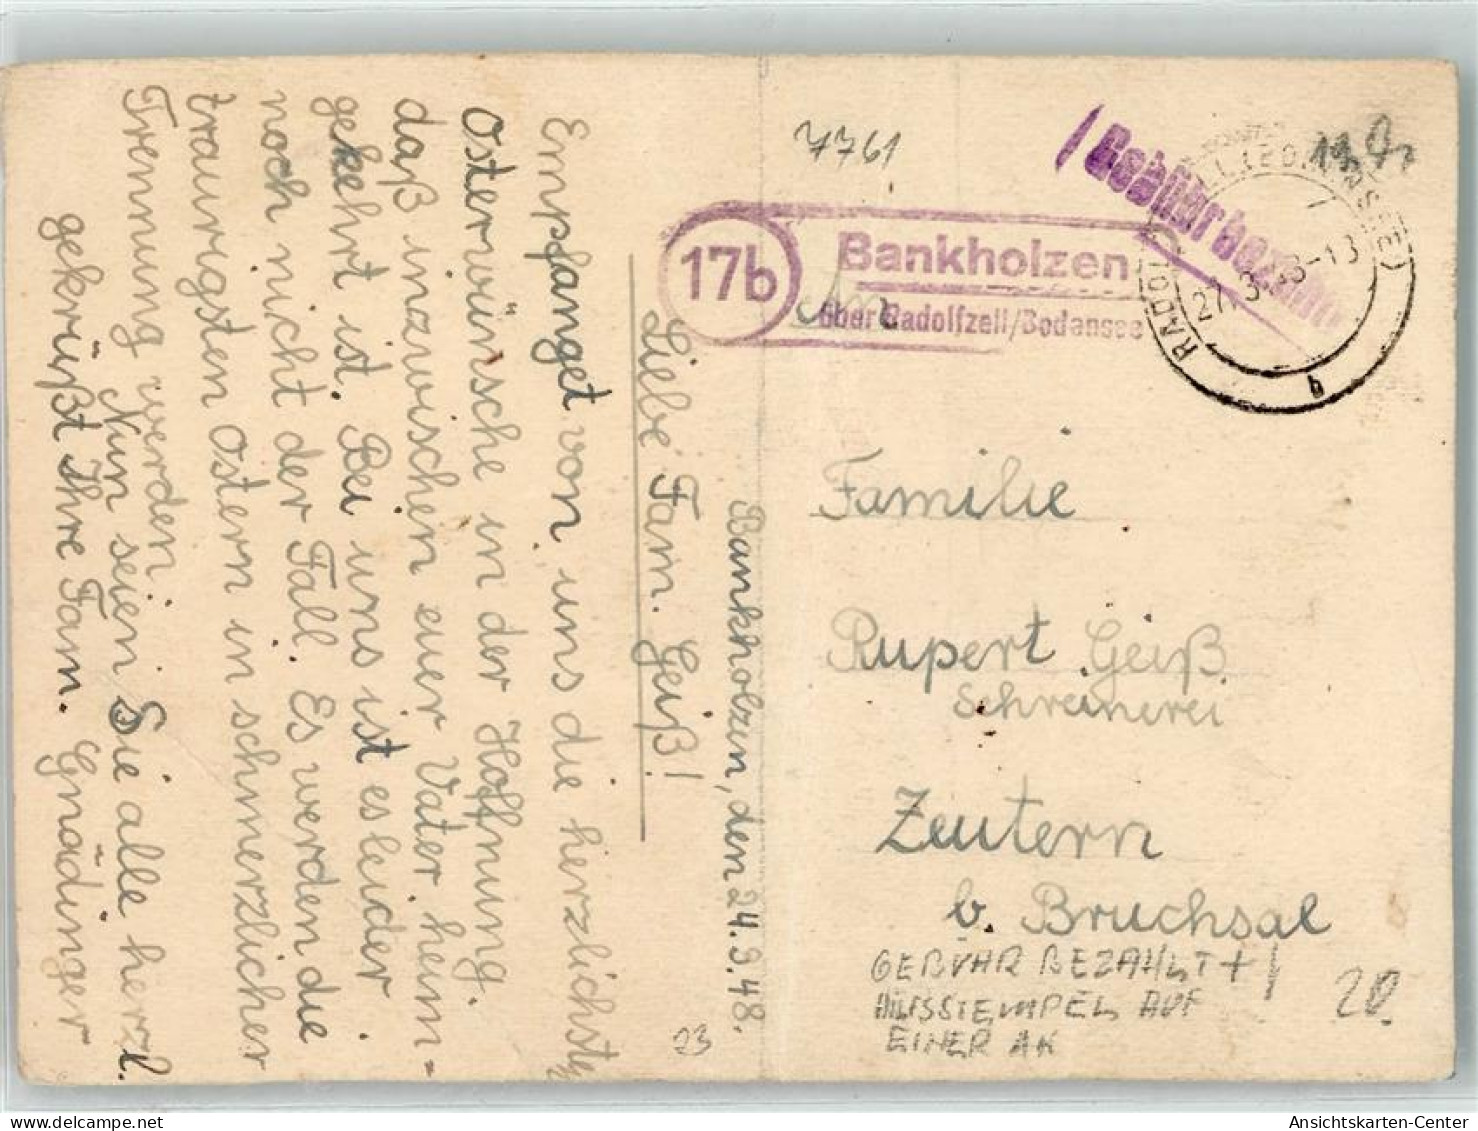 Bankholzen, den 24.3.48.
Liebe Fam. Geiß!
Empfanget von uns die herzlichsten
Osterwünsche in der Hoffnung,
daß inzwischen euer Vater heim-
gekehrt ist. Bei uns ist es leider
noch nicht der Fall. Es werden die
traurigsten Ostern in schmerzlicher
Trennung werden.
Nun seien Sie alle herzl.
gekrüßt Ihre Fam. Gnädinger
23
7761
17b
Bankholzen
über Radolfzell/Bodensee
An
Gebühr bezahlt
27.3.48-13
b
Familie
Rupert Geiß
Schreinerei
Zeutern
b. Bruchsal
GEBÜHR BEZAHLT +
HILFSSTEMPEL AUF
EINER AK
20
Ansichtskarten-Center